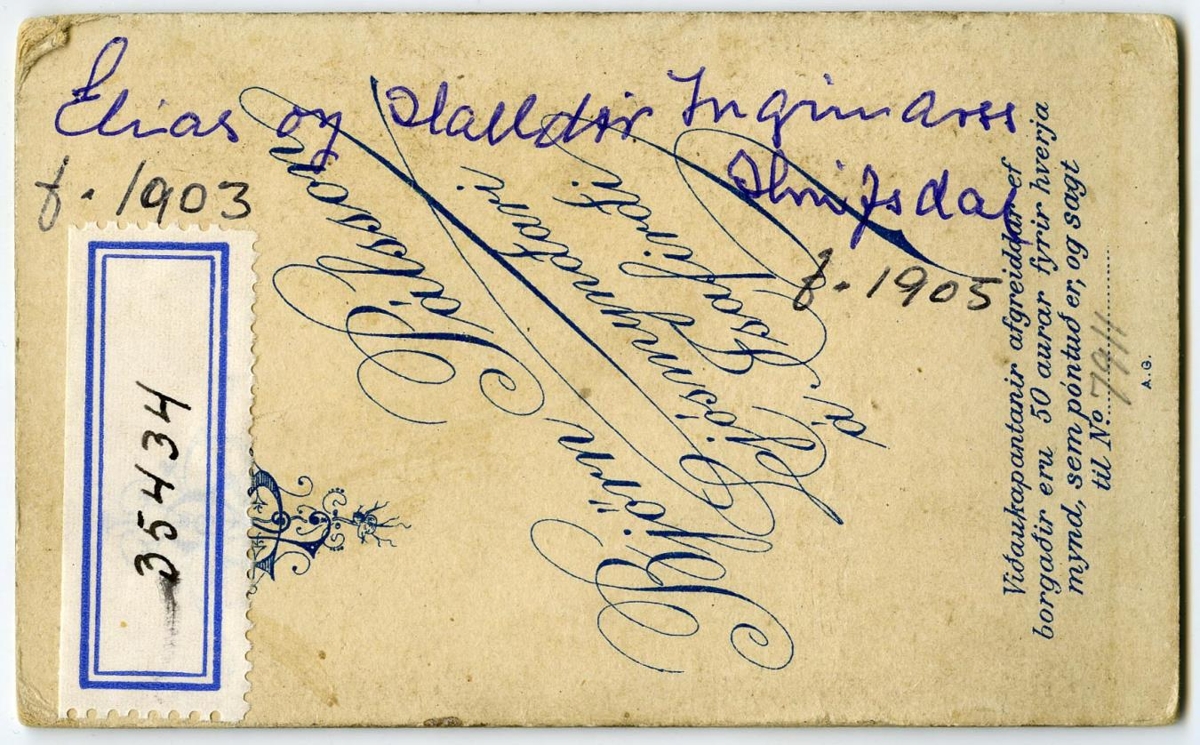 Elias og Halldór Ingimarss
Hnífsdal
f. 1903
f. 1905
35434
Björn Pálsson
Ljósmyndari
á Ísafirði
Viðaukapantanir afgreiddar ef
borgaðir eru 50 aurar fyrir hverja
mynd, sem pöntuð er, og sagt
til No. 7911
A.G.